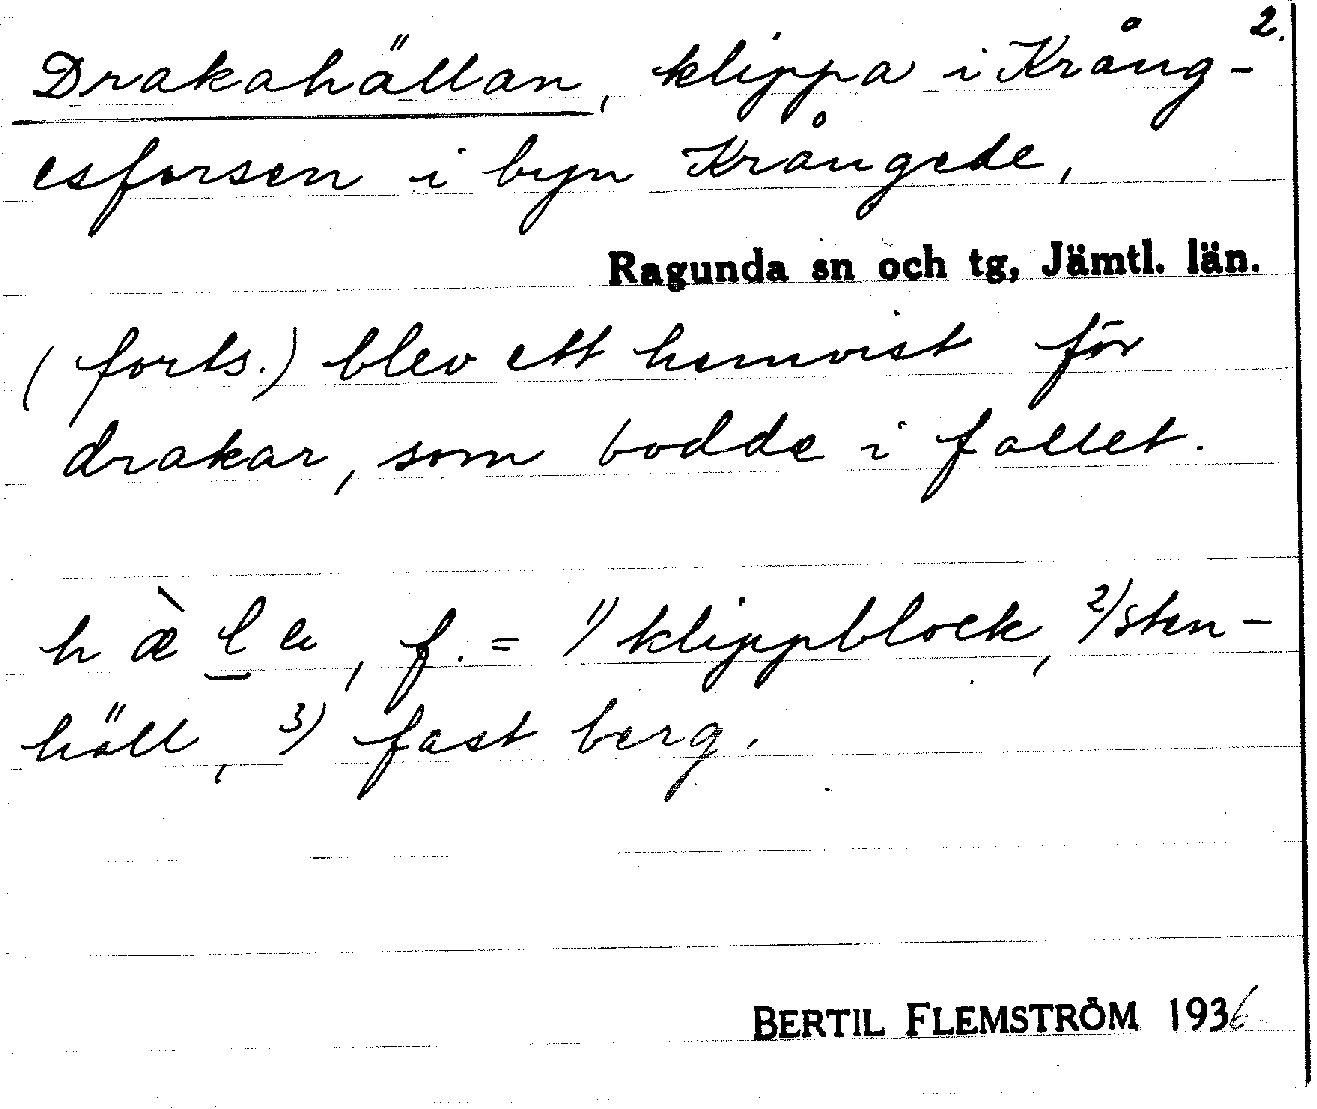 2.
Drakahällan, klippa i Krång-
esforsen i byn Krångede,
Ragunda sn och tg, Jämtl. län.
(forts.) blev ett hemvist för
drakar, som bodde i fallet.
hæ̀l̲a, f. = 1) klippblock, 2) sten-
häll, 3) fast berg.
BERTIL FLEMSTRÖM 1936